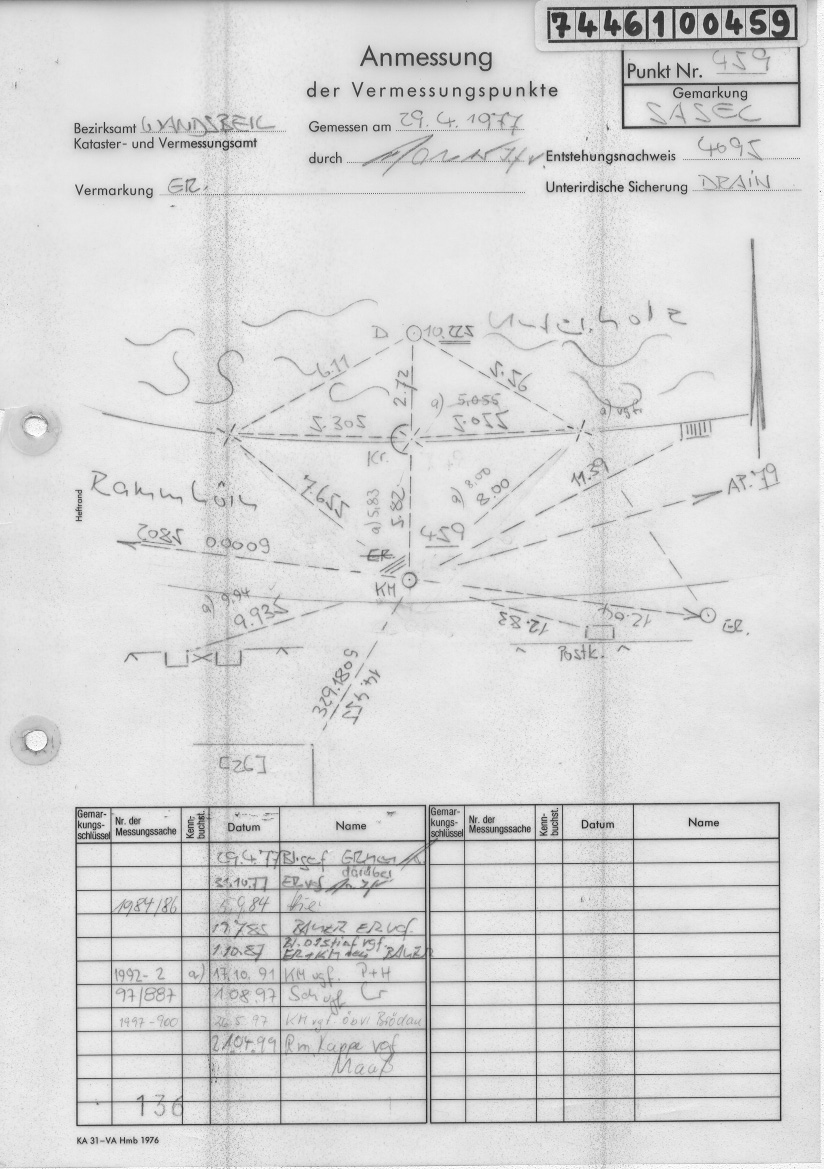 7446100459
Anmessung
der Vermessungspunkte
Punkt Nr. 459
Gemarkung
SASEL
Bezirksamt WANDSBEK
Kataster- und Vermessungsamt
Gemessen am 29.4.1977
durch
Entstehungsnachweis 4095
Vermarkung ER.
Unterirdische Sicherung DRAIN
D
10.225
6.11
2.72
5.56
a) 5.055
5.305
5.055
a) vgf.
Kr.
Heftrand
7.655
a) 5.83
5.82
a) 8.00
8.00
11.39
AP. 79
459
2085
0.0009
ER
KM
a) 9.94
9.935
12.83
12.04
ER.
Postk.
329.1805
14.455
[26]
Gemar-
kungs-
schlüssel
Nr. der
Messungssache
Kenn-
buchst.
Datum
Name
Gemar-
kungs-
schlüssel
Nr. der
Messungssache
Kenn-
buchst.
Datum
Name
29.4.77
darüber
31.10.77 ER vgf
1984/86 5.9.84
19.7.85 BAUER ER vgf.
1.10.87 vgf.
ER+KM BAUER
1992-2 a) 17.10.91 KM vgf. P+H
97/887 1.08.97 Sch vgf
1997-900 26.5.97 KM vgf öbvi Brödau
21.04.99 Rm Kappe vgf
Maaß
136
KA 31–VA Hmb 1976